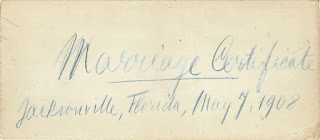 Marriage Certificate
Jacksonville, Florida, May 7, 1908